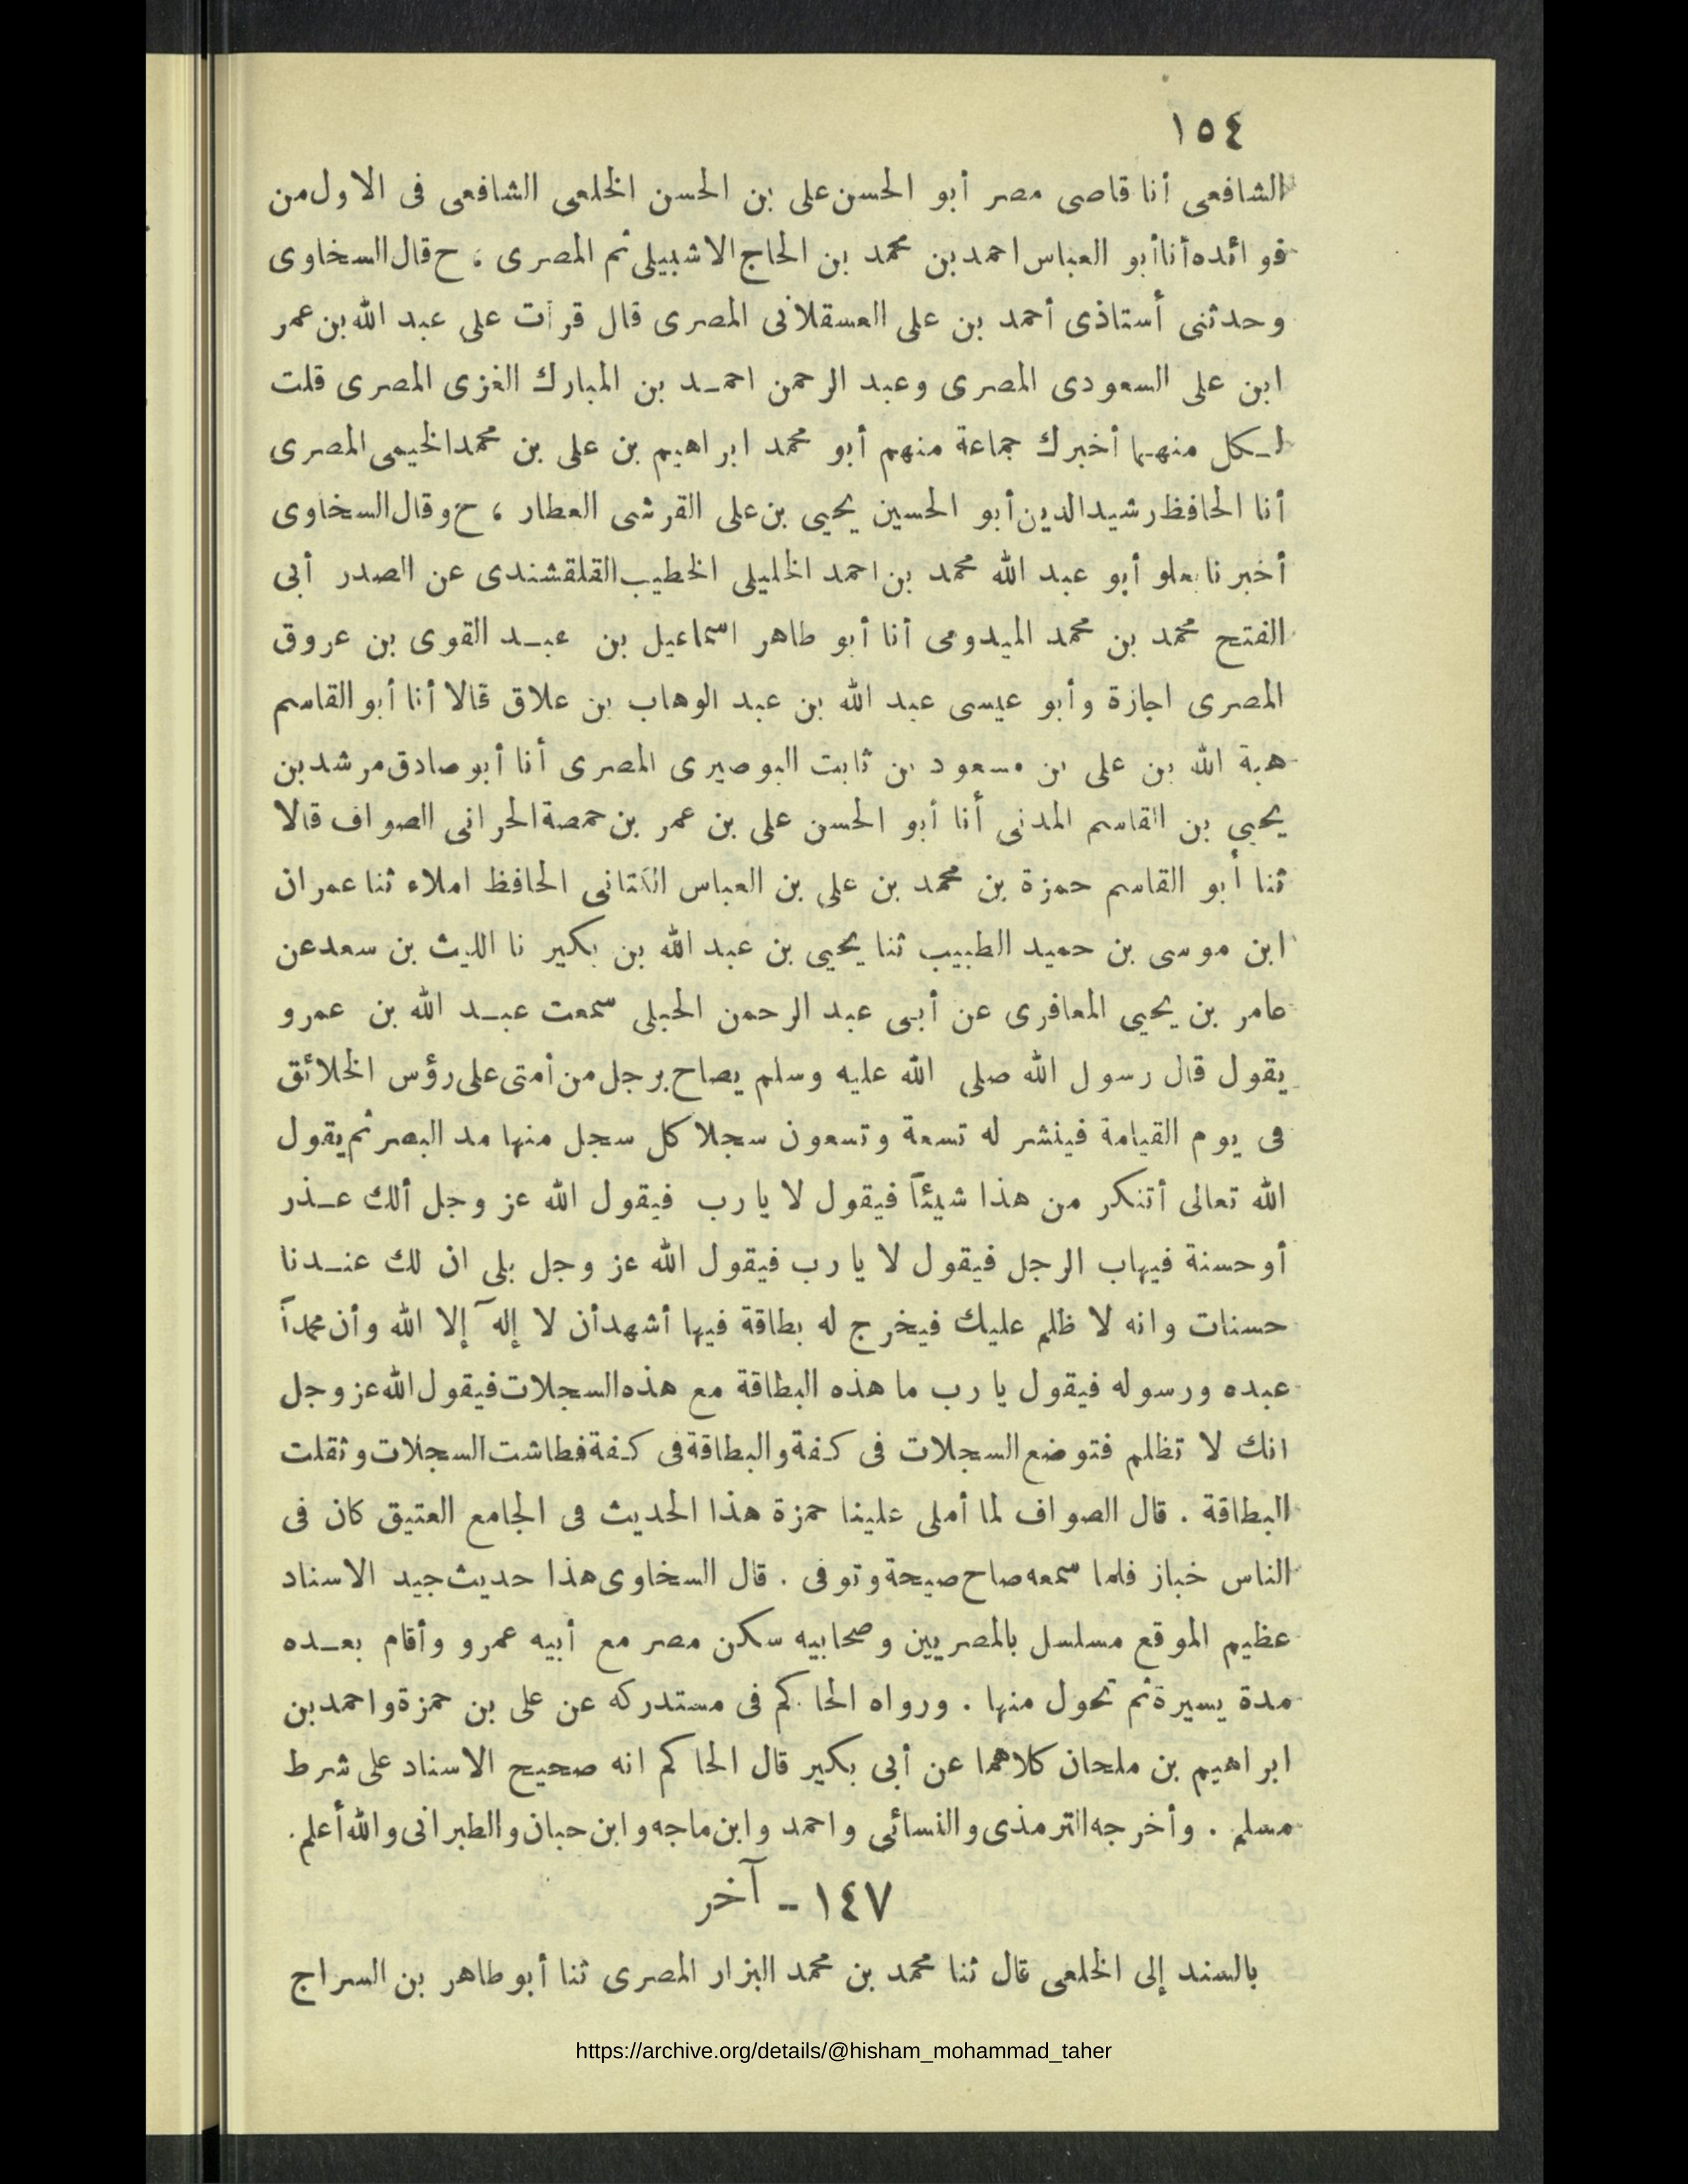 ١٥٤
الشافعى أنا قاضى مصر أبو الحسن على بن الحسن الخلعى الشافعى فى الاول من
فوائده أنا أبو العباس احمد بن محمد بن الحاج الاشبيلى ثم المصرى ، ح قال السخاوى
وحدثنى أستاذى أحمد بن على العسقلانى المصرى قال قرأت على عبد الله بن عمر
ابن على السعودى المصرى وعبد الرحمن احمـد بن المبارك الغزى المصرى قلت
لـكل منهـما أخبرك جماعة منهم أبو محمد ابراهيم بن على بن محمد الخيمى المصرى
أنا الحافظ رشيد الدين أبو الحسين يحيى بن على القرشى العطار ، ح وقال السخاوى
أخبرنا بعلو أبو عبد الله محمد بن احمد الخليلى الخطيب القلقشندى عن الصدر أبى
الفتح محمد بن محمد الميدومى أنا أبو طاهر اسماعيل بن عبـد القوى بن عروق
المصرى اجازة وأبو عيسى عبد الله بن عبد الوهاب بن علاق قالا أنا أبو القاسم
هبة الله بن على بن مسعود بن ثابت البوصيرى المصرى أنا أبو صادق مرشد بن
يحيى بن القاسم المدنى أنا أبو الحسن على بن عمر بن حمصة الحرانى الصواف قالا
ثنا أبو القاسم حمزة بن محمد بن على بن العباس الكتانى الحافظ املاء ثنا عمران
ابن موسى بن حميد الطبيب ثنا يحيى بن عبد الله بن بكير نا الليث بن سعد عن
عامر بن يحيى المعافرى عن أبى عبد الرحمن الحبلى سمعت عبـد الله بن عمرو
يقول قال رسول الله صلى الله عليه وسلم يصاح برجل من أمتى على رؤس الخلائق
فى يوم القيامة فينشر له تسعة وتسعون سجلا كل سجل منها مد البصر ثم يقول
الله تعالى أتنكر من هذا شيئاً فيقول لا يا رب فيقول الله عز وجل ألك عـذر
أو حسنة فيهاب الرجل فيقول لا يا رب فيقول الله عز وجل بلى ان لك عنـدنا
حسنات وانه لا ظلم عليك فيخرج له بطاقة فيها أشهد أن لا إله إلا الله وأن محمداً
عبده ورسوله فيقول يا رب ما هذه البطاقة مع هذه السجلات فيقول الله عز وجل
انك لا تظلم فتوضع السجلات فى كـفة والبطاقة فى كـفة فطاشت السجلات وثقلت
البطاقة . قال الصواف لما أملى علينا حمزة هذا الحديث فى الجامع العتيق كان فى
الناس خباز فلما سمعه صاح صيحة وتوفى . قال السخاوى هذا حديث جيد الاسناد
عظيم الموقع مسلسل بالمصريين وصحابيه سكن مصر مع أبيه عمرو وأقام بعـده
مدة يسيرة ثم تحول منها . ورواه الحاكم فى مستدركه عن على بن حمزة واحمد بن
ابراهيم بن ملحان كلاهما عن أبى بكير قال الحاكم انه صحيح الاسناد على شرط
مسلم . وأخرجه الترمذى والنسائى واحمد وابن ماجه وابن حبان والطبرانى والله أعلم .
١٤٧ - آخر
بالسند إلى الخلعى قال ثنا محمد بن محمد البزار المصرى ثنا أبو طاهر بن السراج
https://archive.org/details/@hisham_mohammad_taher